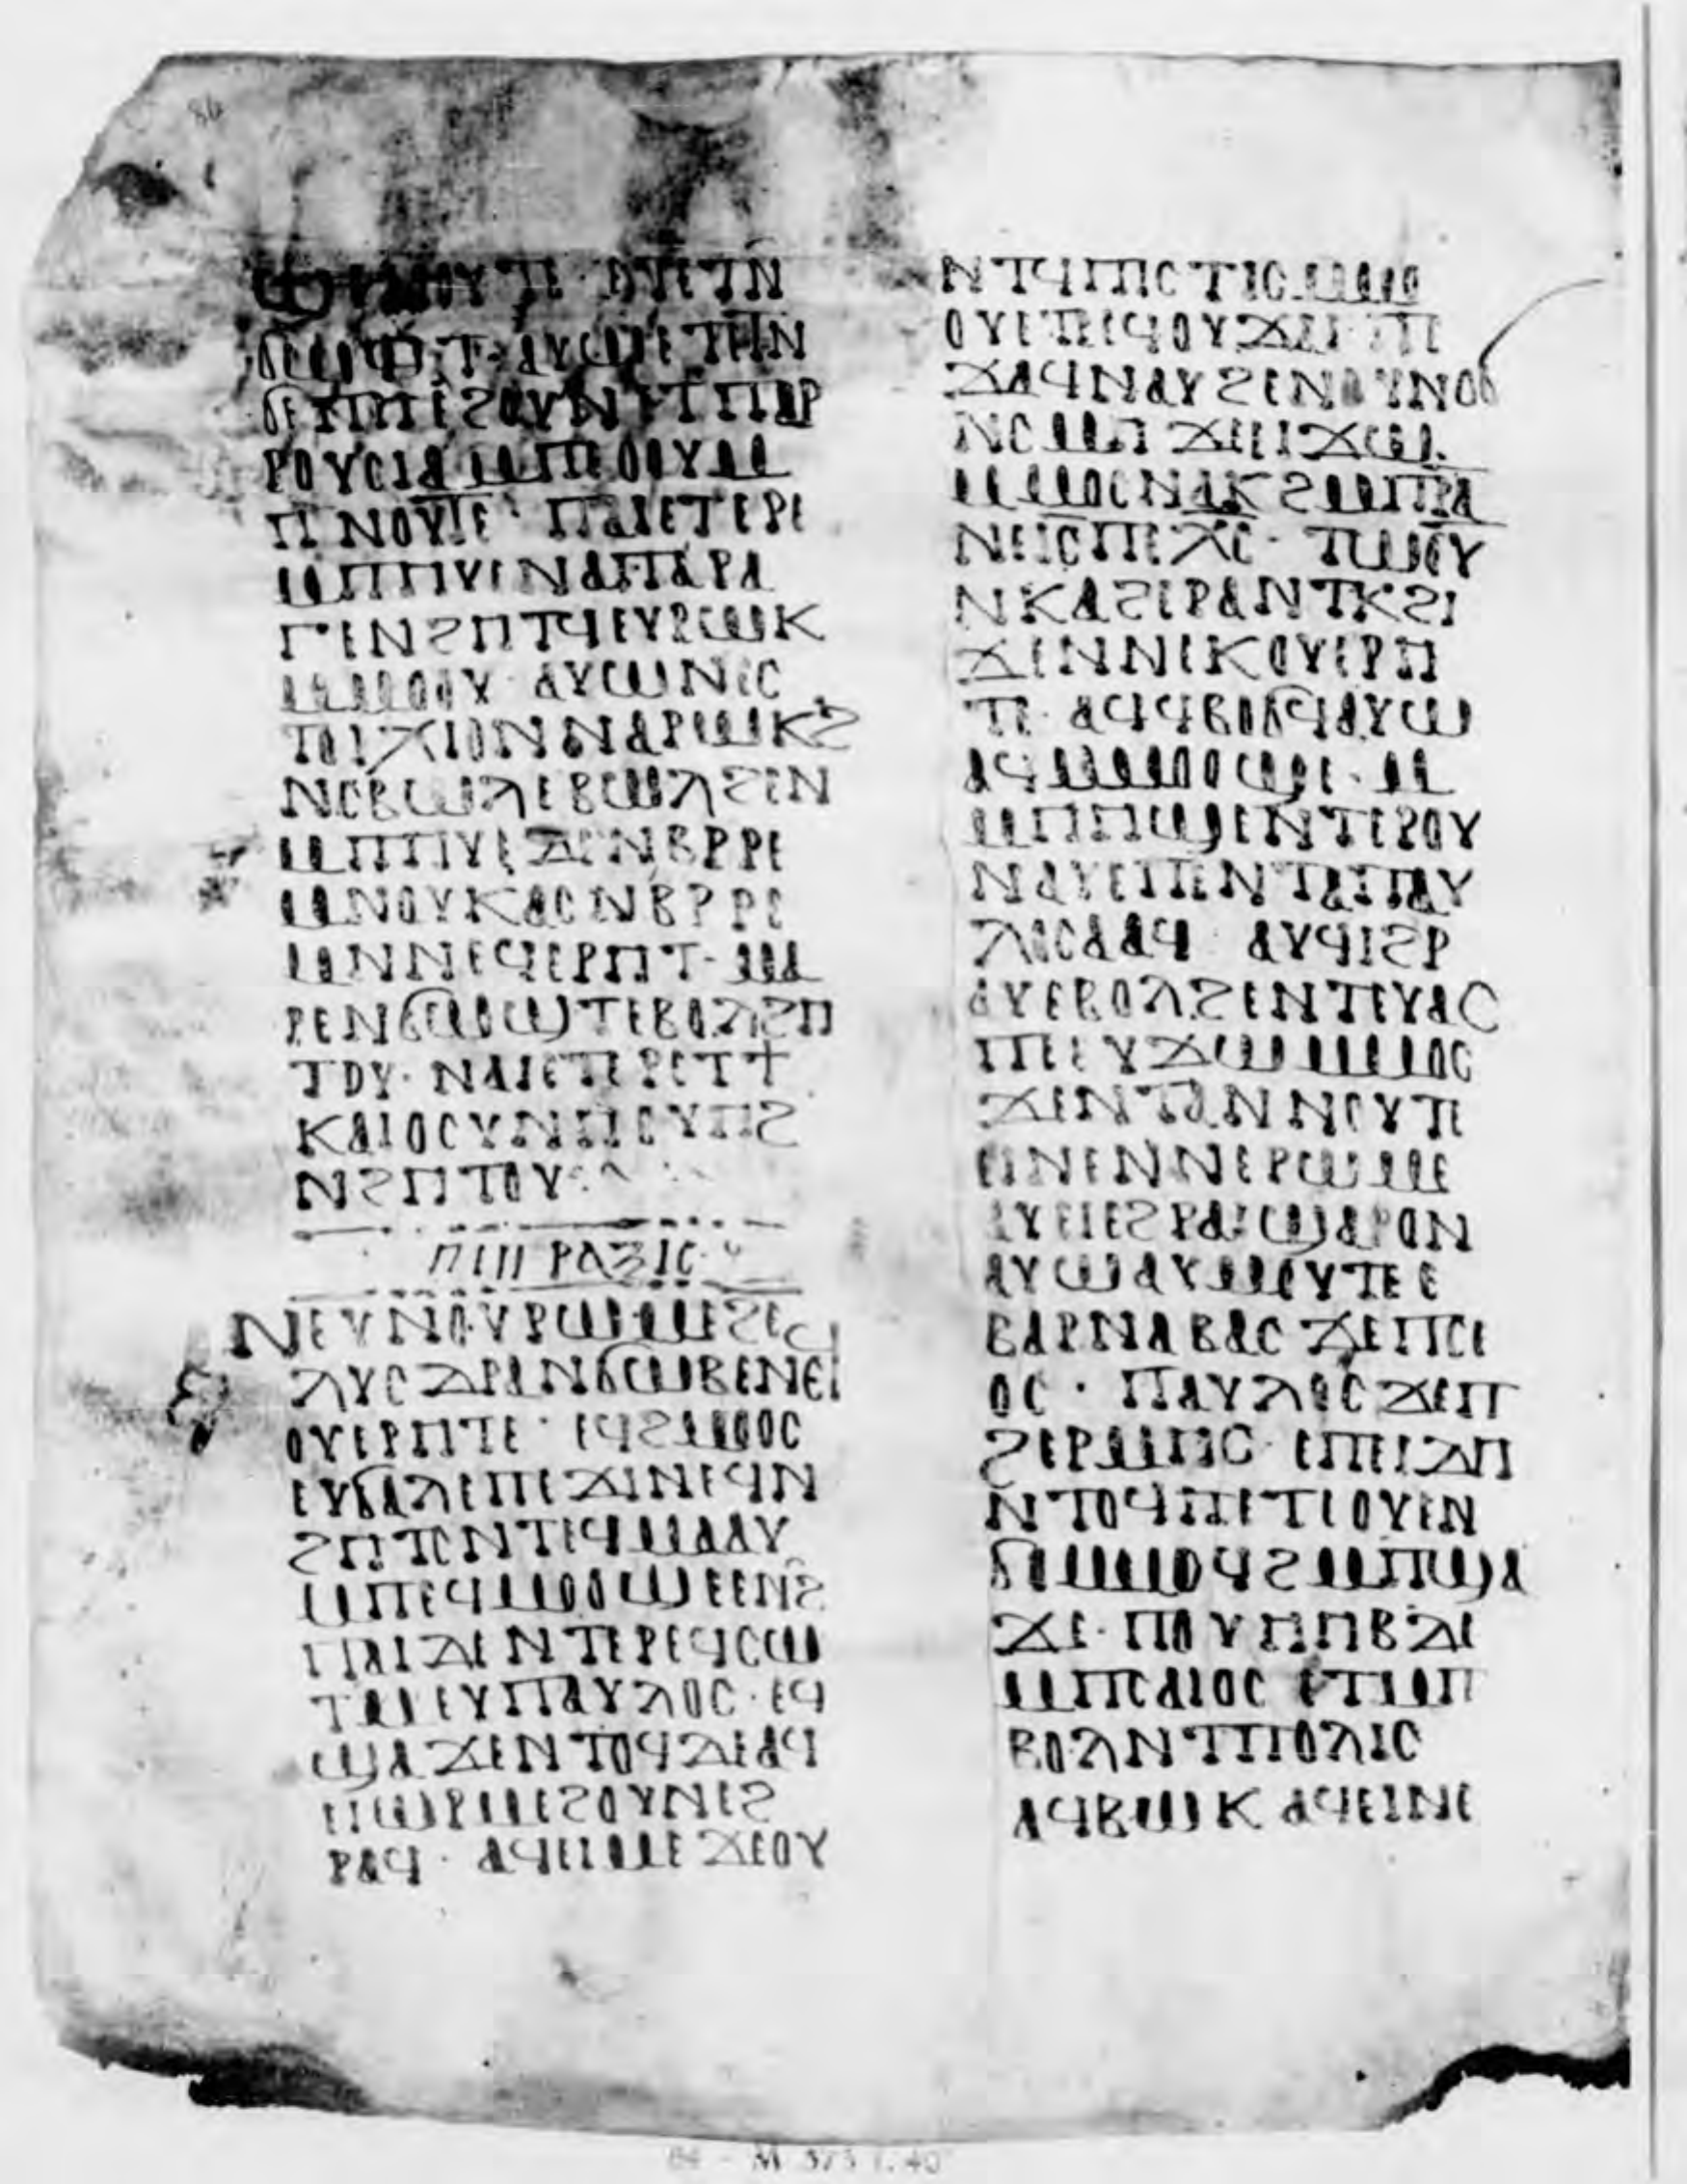 ϭⲱϣⲧ· ⲁⲩⲱⲉⲧⲉⲧⲛ
ϭⲉⲡⲏⲉϩⲟⲩⲛⲉⲧⲡⲁⲣ
ⲣⲟⲩⲥⲓⲁⲙⲡⲉϩⲟⲟⲩⲙ
ⲡⲛⲟⲩⲧⲉ· ⲡⲁⲓⲉⲧⲉⲣⲉ
ⲙⲡⲏⲩⲉⲛⲁⲡⲁⲣⲁ
ⲅⲉⲛϩⲏⲧϥⲉⲩⲣⲱⲕ
ⲙⲙⲟⲟⲩ· ⲁⲩⲱⲛⲉⲥ
ⲧⲟⲓⲭⲓⲟⲛⲛⲁⲣⲱⲕϩ
ⲛⲥⲉⲃⲱⲗⲉⲃⲱⲗϩⲉⲛ
ⲙⲡⲏⲩⲉⲇⲉⲛⲃⲣⲣⲉ
ⲙⲛⲟⲩⲕⲁϩⲛⲃⲣⲣⲉ
ⲙⲛⲛⲉϥⲉⲣⲏⲧ· ⲙⲁ
ⲣⲉⲛϭⲱϣⲧⲉⲃⲟⲗϩⲏ
ⲧⲟⲩ· ⲛⲁⲓⲉⲧⲉⲣⲉⲧϯ
ⲕⲁⲓⲟⲥⲩⲛⲏⲟⲩⲏϩ
ⲛϩⲏⲧⲟⲩ:
ⲡⲣⲁⲝⲓⲥ
ⲛⲉⲩⲛⲟⲩⲣⲱⲙⲉϩⲉⲛ
ⲗⲩⲥⲇⲣⲁⲛϭⲱⲃⲉⲛⲉϥ
ⲟⲩⲉⲣⲏⲧⲉ· ⲉϥϩⲙⲟⲟⲥ
ⲉⲩϭⲁⲗⲉⲡⲉϫⲓⲛⲉϥⲛ
ϩⲏⲧⲟⲛⲧⲉϥⲙⲁⲁⲩ
ⲙⲡⲉϥⲙⲟⲟϣⲉⲉⲛϩ
ⲡⲁⲓⲇⲉⲛⲧⲉⲣⲉϥⲥⲱ
ⲧⲙⲉⲩⲡⲁⲩⲗⲟⲥ· ⲉϥ
ϣⲁϫⲉⲛⲧⲟϥⲇⲉⲁϥ
ⲉⲓⲱⲣⲙⲉϩⲟⲩⲛⲉϩ
ⲣⲁϥ· ⲁϥⲉⲓⲙⲉϫⲉⲟⲩ
ⲛⲧϥⲡⲓⲥⲧⲓⲥⲙⲙⲁ
ⲟⲩⲉⲧⲣⲉϥⲟⲩϫⲁⲓ· ⲡⲉ
ϫⲁϥⲛⲁⲩϩⲉⲛⲟⲩⲛⲟϭ
ⲛⲥⲙⲏϫⲉⲉⲓϫⲱ
ⲙⲙⲟⲥⲛⲁⲕϩⲙⲡⲣⲁ
ⲛⲉⲓⲥⲡⲉⲭⲥ· ⲧⲱⲟⲩ
ⲛⲕⲁϩⲉⲣⲁⲛⲧⲕϩⲓ
ϫⲉⲛⲛⲉⲕⲟⲩⲉⲣⲏ
ⲧⲉ· ⲁϥϥⲃⲟϭϥⲁⲩⲱ
ⲁϥⲙⲙⲟⲟϣⲉ· ⲙ
ⲙⲏⲏϣⲉⲛⲧⲉⲣⲟⲩ
ⲛⲁⲩⲉⲡⲉⲛⲧⲁⲡⲁⲩ
ⲗⲟⲥⲁⲁϥ· ⲁⲩϥⲓϩⲣ
ⲁⲩⲉⲃⲟⲗϩⲉⲛⲧⲉⲩⲁⲥ
ⲡⲉⲉⲩϫⲱⲙⲙⲟⲥ
ϫⲉⲛⲧⲁⲛⲛⲟⲩⲧⲉ
ⲉⲓⲛⲉⲛⲛⲉⲣⲱⲙⲉ
ⲁⲩⲉⲓⲉϩⲣⲁⲓϣⲁⲣⲟⲛ
ⲁⲩⲱⲁⲩⲙⲟⲩⲧⲉⲉ
ⲃⲁⲣⲛⲁⲃⲁⲥϫⲉⲡⲥⲉ
ⲟⲥ· ⲡⲁⲩⲗⲟⲥϫⲉⲡ
ϩⲉⲣⲙⲏⲥ· ⲉⲡⲉⲓⲇⲏ
ⲛⲧⲟϥⲡⲉⲧⲉⲟⲩⲉⲛ
ϭⲟⲙⲙⲟϥϩⲙⲡϣⲁ
ϫⲉ· ⲡⲟⲩⲏⲏⲃⲇⲉ
ⲙⲡⲥⲁⲓⲟⲥⲉⲧⲙⲡ
ⲃⲟⲗⲛⲧⲡⲟⲗⲓⲥ
ⲁϥⲃⲱⲕⲁϥⲉⲓⲛⲉ